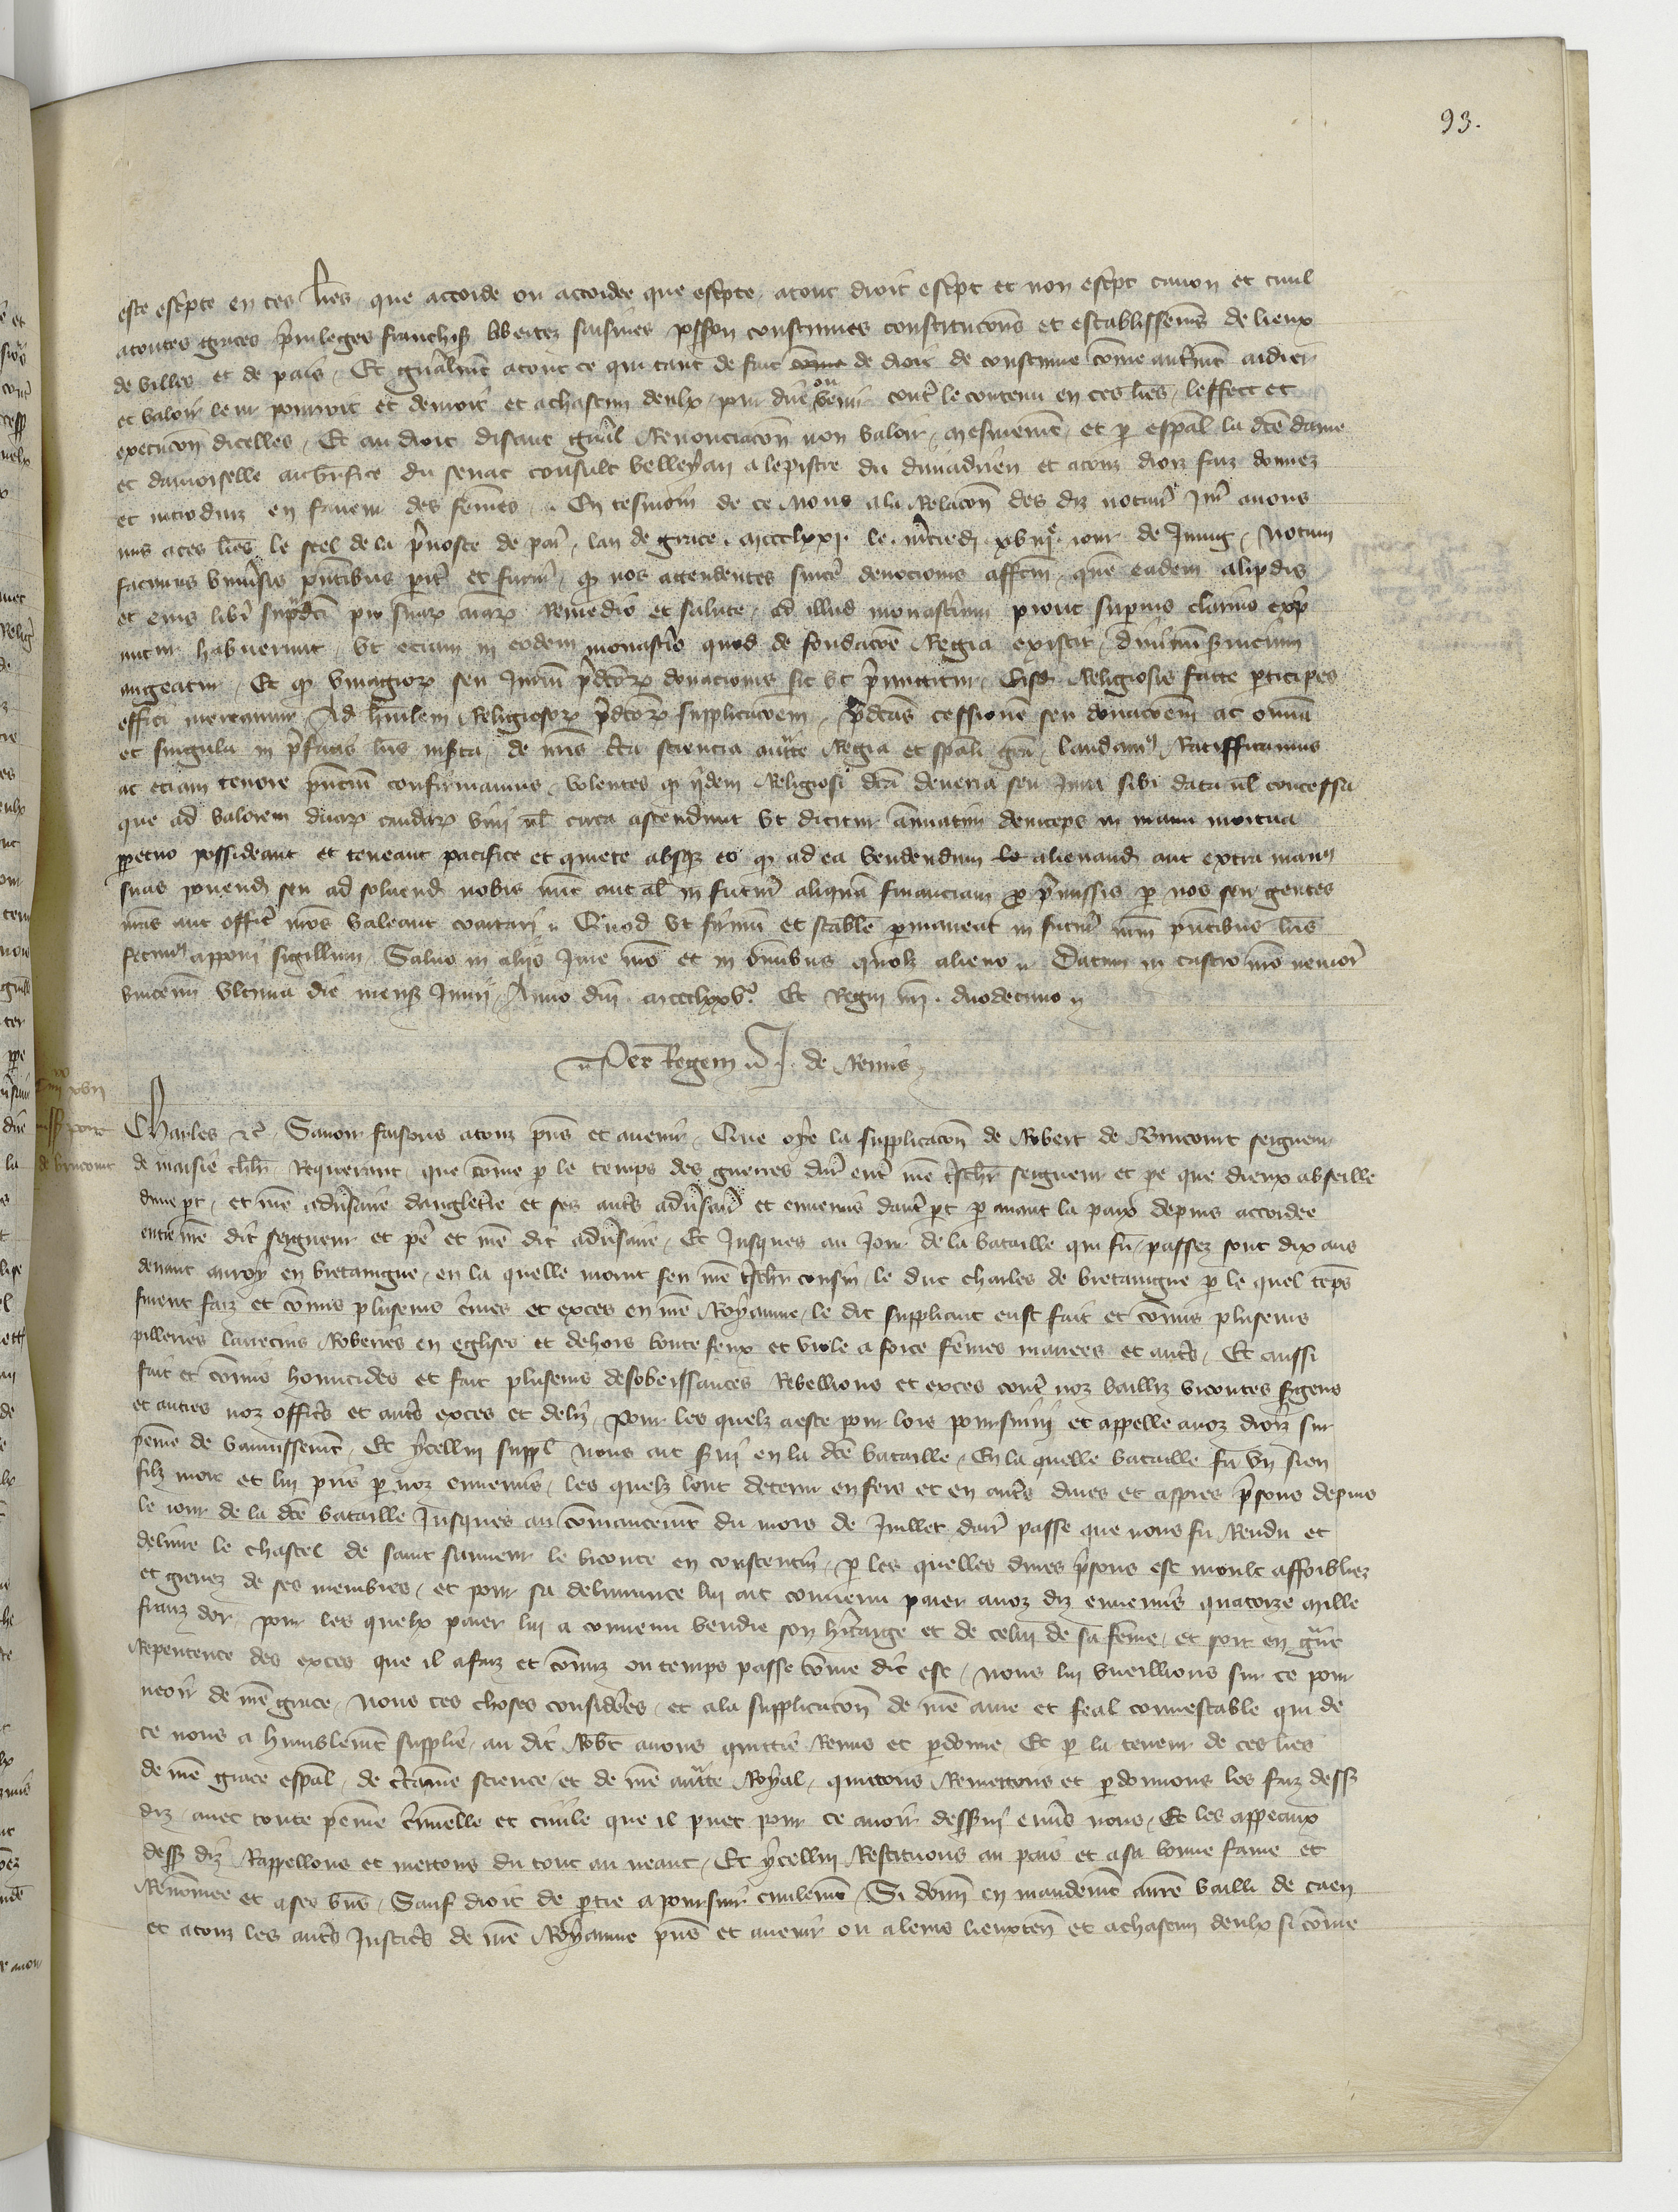 93.
este escpte en ces lres que accorde ou accordee que escpte, a tout droit escpt et non escpt canon et civil
a toutes graces privileges franchises libertez saisines possession coustumes constitucons et establissemens de lieux
de villes et de pais, Et gnalment a tout ce qui tant de fait come de droit de coustume come autrement aidier
et valoir leur pourroit et devroit et a chascun deulx, pour dire ou venir contre le contenu en ces lres, leffect et
execucon dicelles, Et au droit disant gnal Renonciacon non valoir, mesmement, et p espal la dce dame
et damoiselle au benfice du senat consult velleyan a lepistre du div adrien et a touz droiz faiz donnez
et introduiz en faveur des femes, En tesmoin de ce Nous a la Relacon des diz notaires Jur avons
mis a ces lres le scel de la prevoste de par, lan de grace mccclxxi le mercredi xviije jour de Juing, Notum
facimus universis pntibus pariter et futur, q nos attendentes sincere devocionis affcm, quem eadem alipdis
et eius liberi supdci pro suarum aiarum remedio et salute, ad illud monasterium prout superius clarius expri
mitur habuerunt, Ut eciam in eodem monasterio quod de fondacoe Regia existit, divinum servicium
augeatur, Et q vinagiorum seu Jurium pdctorum donacionis sic ut premittitur, eisdem Religiosis facte participes
effici mereamur, Ad humilem Religiosorum pdctorum supplicacoem, pdctas cessionem seu donacoem ac omnia
et singula in prefatis lris inserta, de nris certa sciencia auctte Regia et spali gra, laudamus Ratifficamus
ac eciam tenore pncium confirmamus, volentes q ydem Religiosi dcta deveria seu Jura sibi data vel concessa
que ad valorem duarum caudarum vini vel circa ascendunt ut dicitur annuatim deinceps in manu mortua
perpetuo possideant et teneant pacifice et quiete absque eo q ad ea vendendum le alienand aut extra manus
suas ponend seu ad solvend nobis nunc aut al in futur aliquam financiam pro premissis per nos seu gentes
nras aut offic nros valeant coartari, Quod ut firmum et stabile permaneat in futur nrm pntibus lris
fecimus apponi sigillum, Salvo in aliis Jure nro et in omnibus quolz alieno, Datum in castro nro nemor
vincenn ultima die mensis Junii, Anno dni mccclxxvo Et Regni nri duodecimo
Per Regem J. de Remis
Charles &c Savoir faisons a touz pns et avenir, Que oye la supplicacon de Robert de Brucourt seigneur
de maisie chlr, Requerant, que come p le temps des guerres dar entre nre treschr seigneur et pe que dieux absoille
dune pt, et nre adversaire dangletre et ses autres adversair et ennemis dautre pt p avant la paix depuis accordee
entre nre dit seigneur et pere et nre dit adversaire, Et Jusques au Jour de la bataille qui fu, passez sont dix ans
devant auroy en bretaingne, en la quelle mourut feu nre treschr cousin, le duc charles de bretaingne p le quel teps
furent faiz et comis plusieurs crimes et exces en nre Royaume, le dit suppliant eust fait et comis plusieurs
pilleries larrecins Roberies en eglises et dehors boute feux et viole a force femes mariees et autres, Et aussi
fait et comis homicides et fait plusieurs desobeissances Rebellions et exces contre noz bailliz vicontes sergens
et autres noz officiers et autres exces et deliz, Pour les quelz a este pour lors poursuivi et appelle a noz droiz sur
peine de bannissement, Et ycellui suppl nous ait servi en la dce bataille, En la quelle bataille fu un sien
filz mort et lui pris p noz ennemis, les quelz lont detenu en fers et en autres dures et aspres prisons depuis
le jour de la dce bataille Jusques au comancement du mois de Juillet darr passe que nous fu Rendu et
delivre le chastel de saint sauveur le viconte en coustentin, p les quelles dures prisons est moult affoibliez
et grevez de ses membres, et pour sa delivrance lui ait convenu paier a noz diz ennemis quatorze mille
franz dor, pour les quelx paier lui a convenu vendre son heritaige et de celui de sa feme, et soit en grant
Repentence des exces que il a faiz et comis ou temps passe come dit est, nous lui vueillions sur ce pour
veoir de nre grace, Nous ces choses considerees, et a la supplicacon de nre ame et feal connestable qui de
ce nous a humblement supplie, au dit Robt avons quittie Remis et pdonne, Et p la teneur de ces lres
de nre grace espal, de certaine science, et de nre auctte Royal, quictons Remettons et pdonnons les faiz dess
diz, avec toute peine criminelle et civile que il puet pour ce avoir desservi envers nous, Et les appeaux
dess diz Rappellons et mettons du tout au neant, Et ycellui Restituons au pais et a sa bonne fame et
Renomee et a ses biens, Sauf droit de ptie a poursuir civilement, Si donn en mandement a nre bailli de caen
et a touz les autres Justiciers de nre Royaume pns et avenir ou a leurs lieuxten et a chascun deulx si come